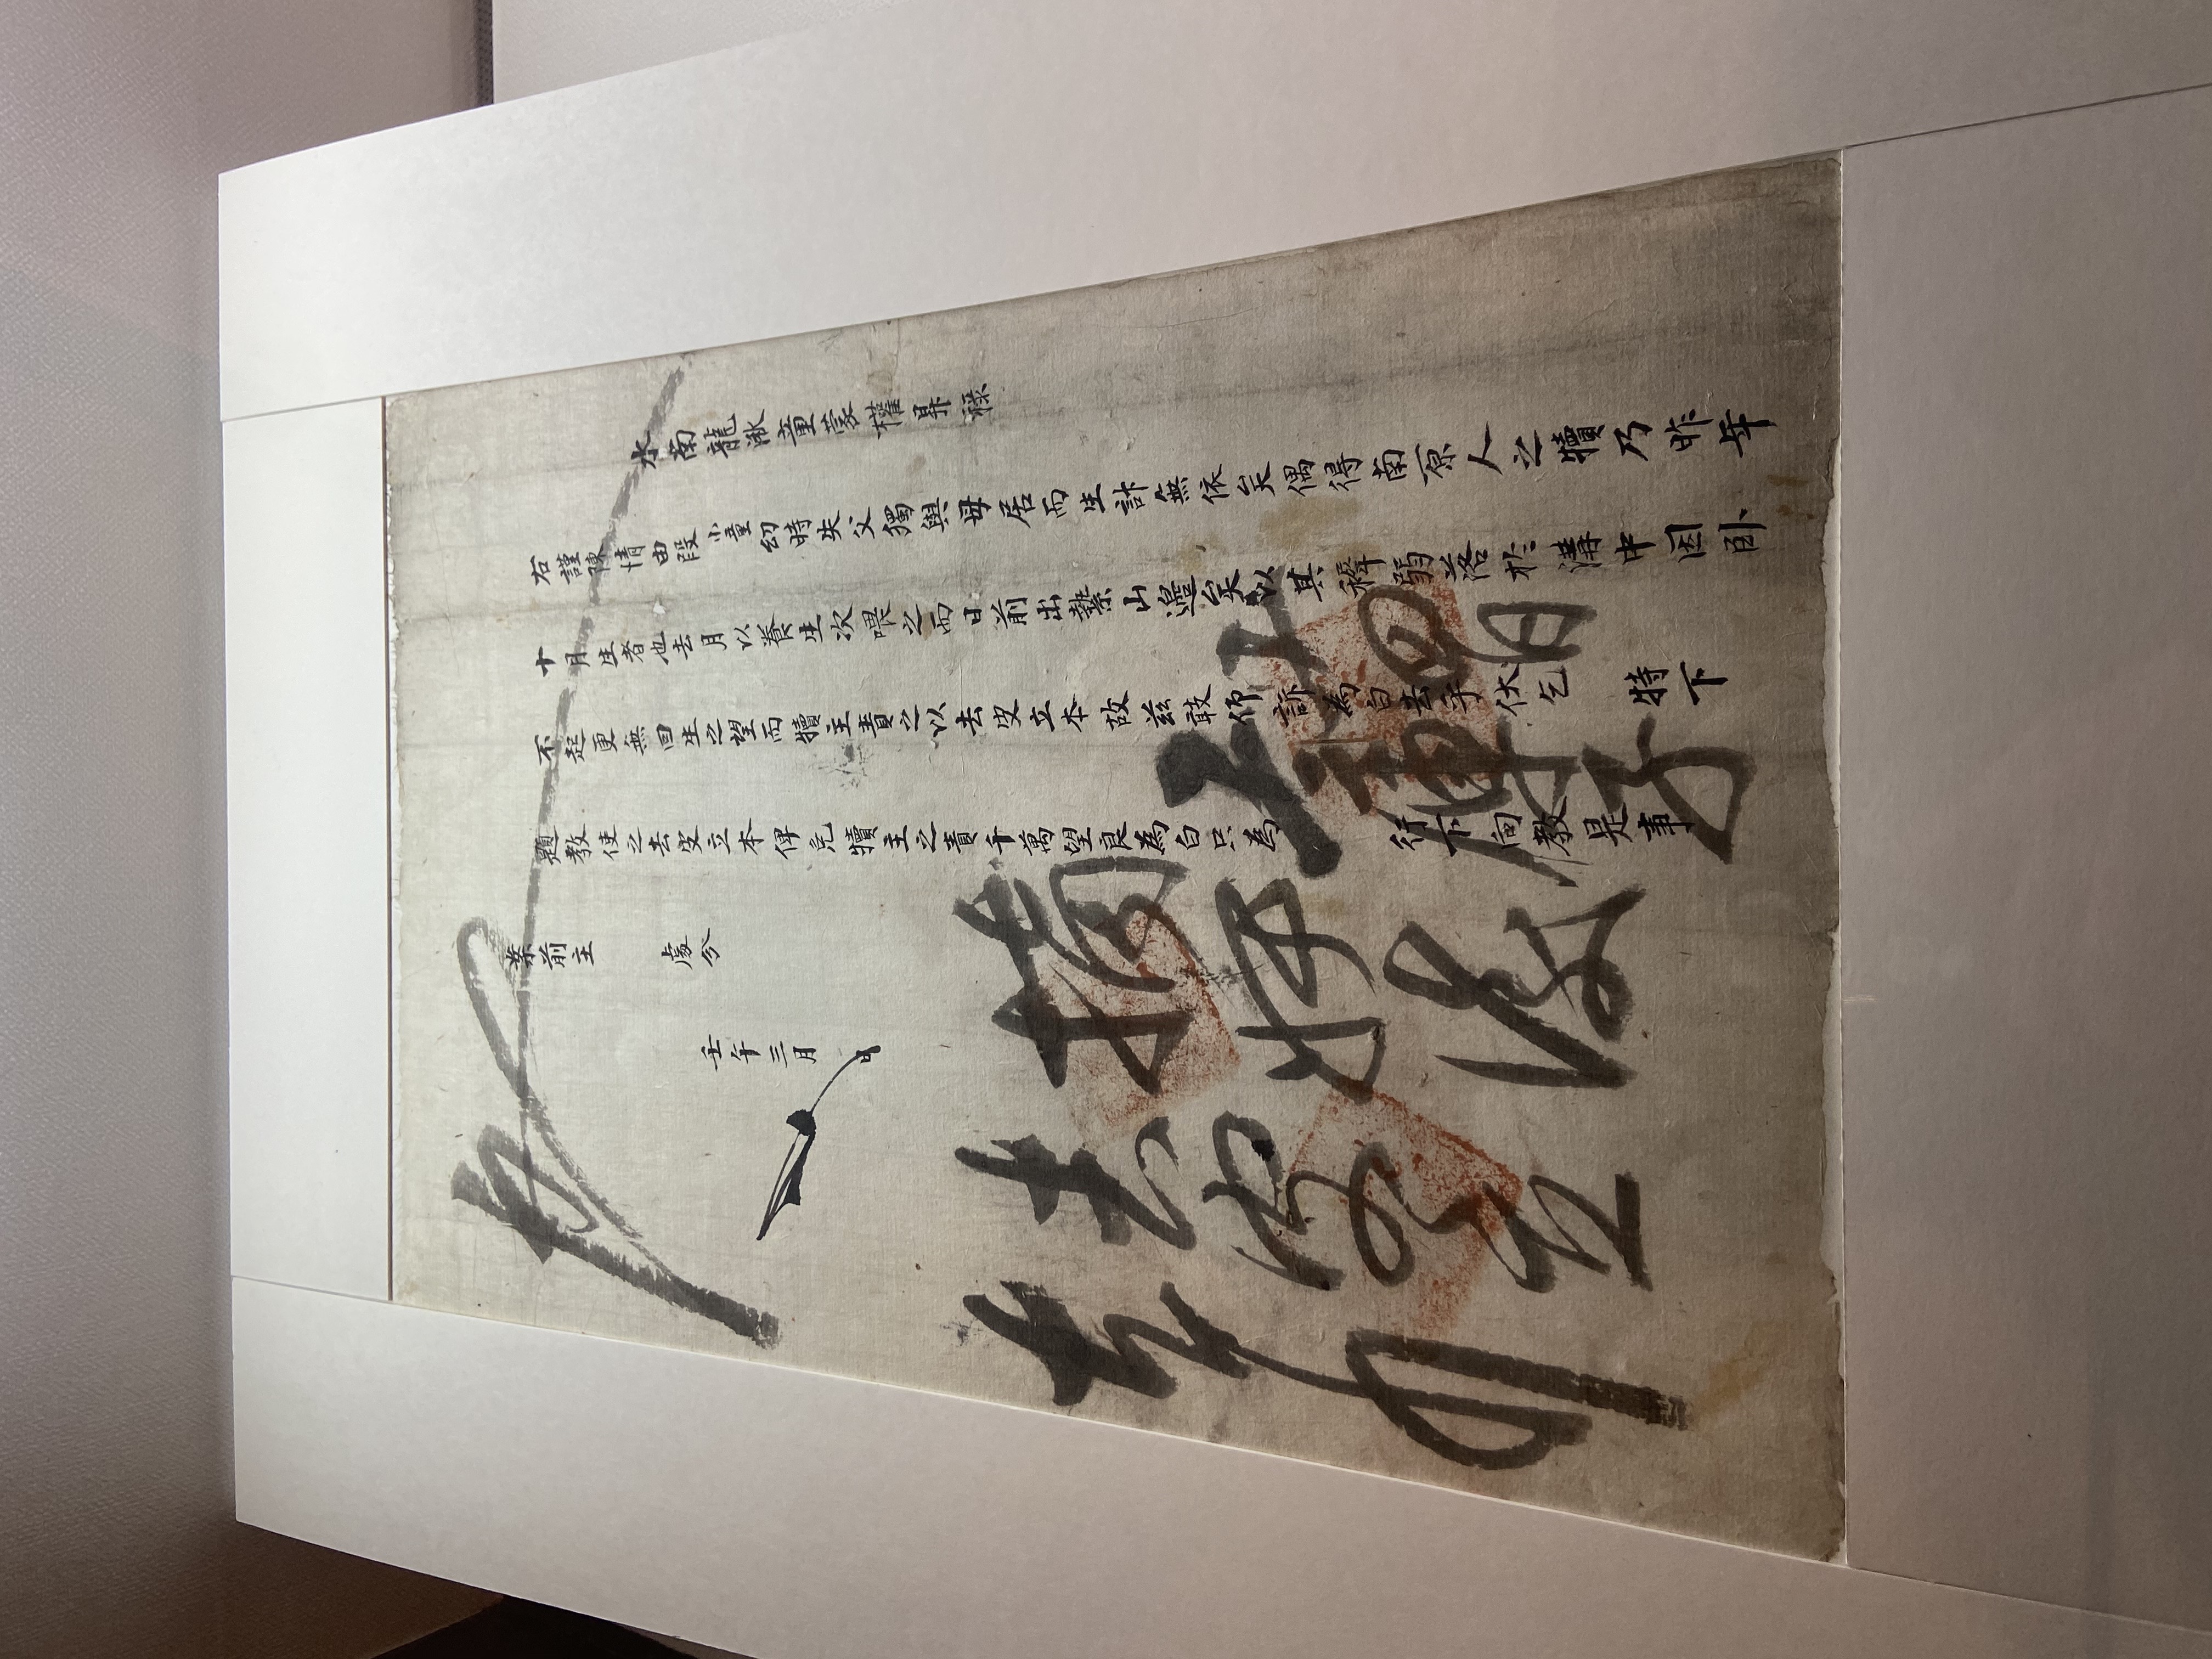 水南龍湫童蒙權昇祿
右謹陳情由段小童幼時失父獨與母居而生計無依矣偶得南原人之犢乃昨年
十月生者也去月以養生次喂之而日前出繫山邊矣以其稺弱落於溝中因臥
不起更無回生之望而犢主責之以去皮立本故玆敢仰訴為白去乎伏乞 特下
題教使之去皮立本俾免犢主之責千萬望良為白只為
行下向教是事
案前主 處分
壬午三月 日
初四日
工庫子
摘奸後
去皮立
本向事